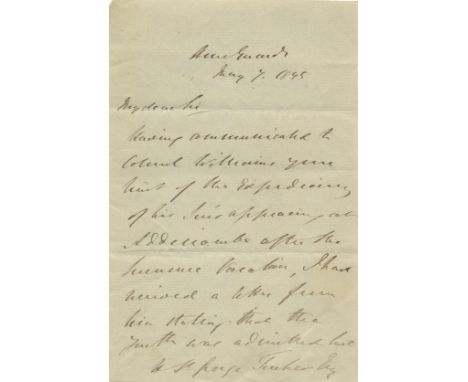 Horse Guards
May 7. 1845
My dear Sir
Having communicated to
Colonel Williams your
hint of the Expediency
of his Son's appearing at
Addiscombe after the
summer Vacation, I have
received a letter from
him stating that the
Youth was admitted but
to St George Tucker Esq